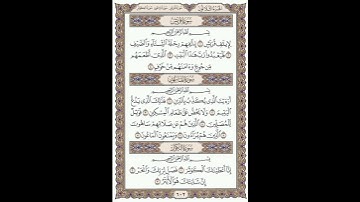 سُورَةُ قُرَيْشٍ
بِسْمِ اللَّهِ الرَّحْمَٰنِ الرَّحِيمِ
لِإِيلَافِ قُرَيْشٍ ١ إِۦلَافِهِمْ رِحْلَةَ الشِّتَاءِ وَالصَّيْفِ
٢ فَلْيَعْبُدُوا رَبَّ هَٰذَا الْبَيْتِ ٣ الَّذِي أَطْعَمَهُم
مِّن جُوعٍ وَآمَنَهُم مِّنْ خَوْفٍ ٤
سُورَةُ المَاعُونِ
بِسْمِ اللَّهِ الرَّحْمَٰنِ الرَّحِيمِ
أَرَأَيْتَ الَّذِي يُكَذِّبُ بِالدِّينِ ١ فَذَٰلِكَ الَّذِي يَدُعُّ
الْيَتِيمَ ٢ وَلَا يَحُضُّ عَلَىٰ طَعَامِ الْمِسْكِينِ ٣ فَوَيْلٌ
لِّلْمُصَلِّينَ ٤ الَّذِينَ هُمْ عَن صَلَاتِهِمْ سَاهُونَ
٥ الَّذِينَ هُمْ يُرَاءُونَ ٦ وَيَمْنَعُونَ الْمَاعُونَ ٧
سُورَةُ الكَوْثَرِ
بِسْمِ اللَّهِ الرَّحْمَٰنِ الرَّحِيمِ
إِنَّا أَعْطَيْنَاكَ الْكَوْثَرَ ١ فَصَلِّ لِرَبِّكَ وَانْحَرْ ٢
إِنَّ شَانِئَكَ هُوَ الْأَبْتَرُ ٣
٦٠٢